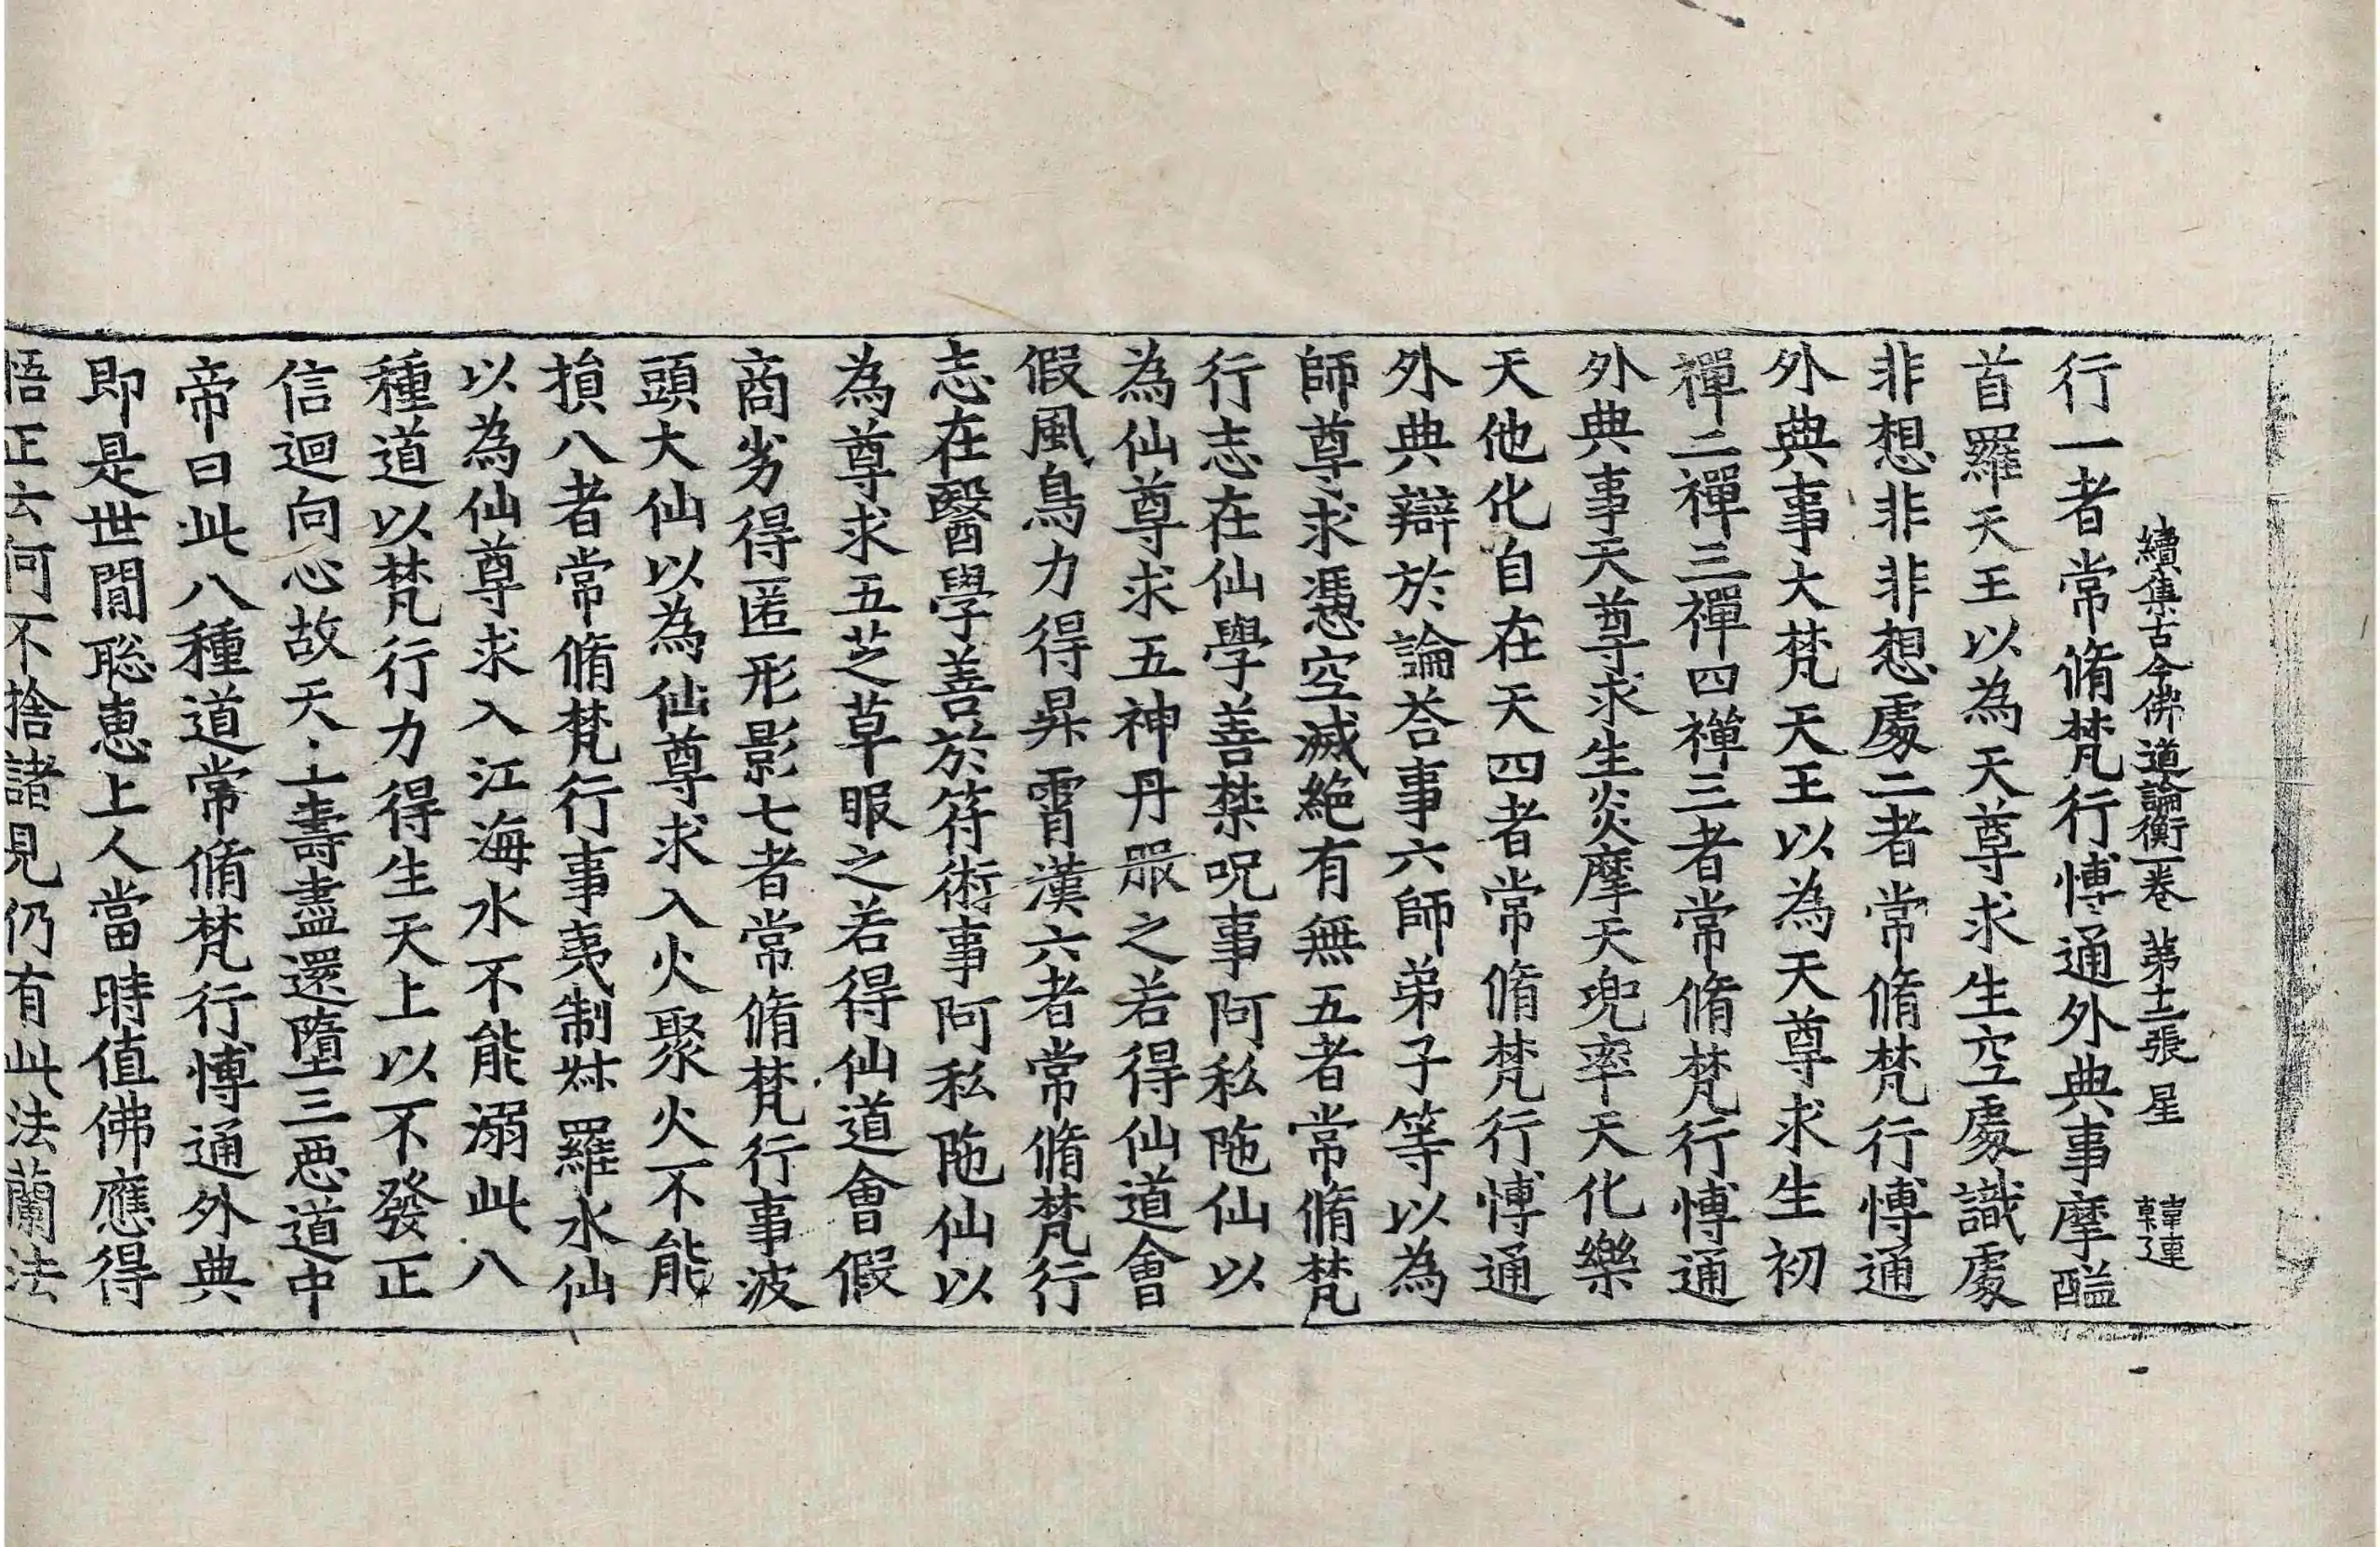 續集古今佛道論衡一卷　第十二張　星　韓連
行一者常脩梵行博通外典事摩醯
首羅天王以為天尊求生空處識處
非想非非想處二者常脩梵行博通
外典事大梵天王以為天尊求生初
禪二禪三禪四禪三者常脩梵行博通
外典事天尊求生炎摩天兜率天化樂
天他化自在天四者常脩梵行博通
外典辯於論荅事六師弟子等以為
師尊求憑空滅絕有無五者常脩梵
行志在仙學善禁呪事阿私陁仙以
為仙尊求五神丹服之若得仙道會
假風鳥力得昇霄漢六者常脩梵行
志在醫學善於符術事阿私陁仙以
為尊求五芝草服之若得仙道會假
商劣得匿形影七者常脩梵行事波
頭大仙以為仙尊求入火聚火不能
損八者常脩梵行事夷制絉羅水仙
以為仙尊求入江海水不能溺此八
種道以梵行力得生天上以不發正
信迴向心故天上壽盡還墮三惡道中
帝曰此八種道常脩梵行博通外典
即是世間聡恵上人當時值佛應得
悟正云何不捨諸見仍有此法蘭法